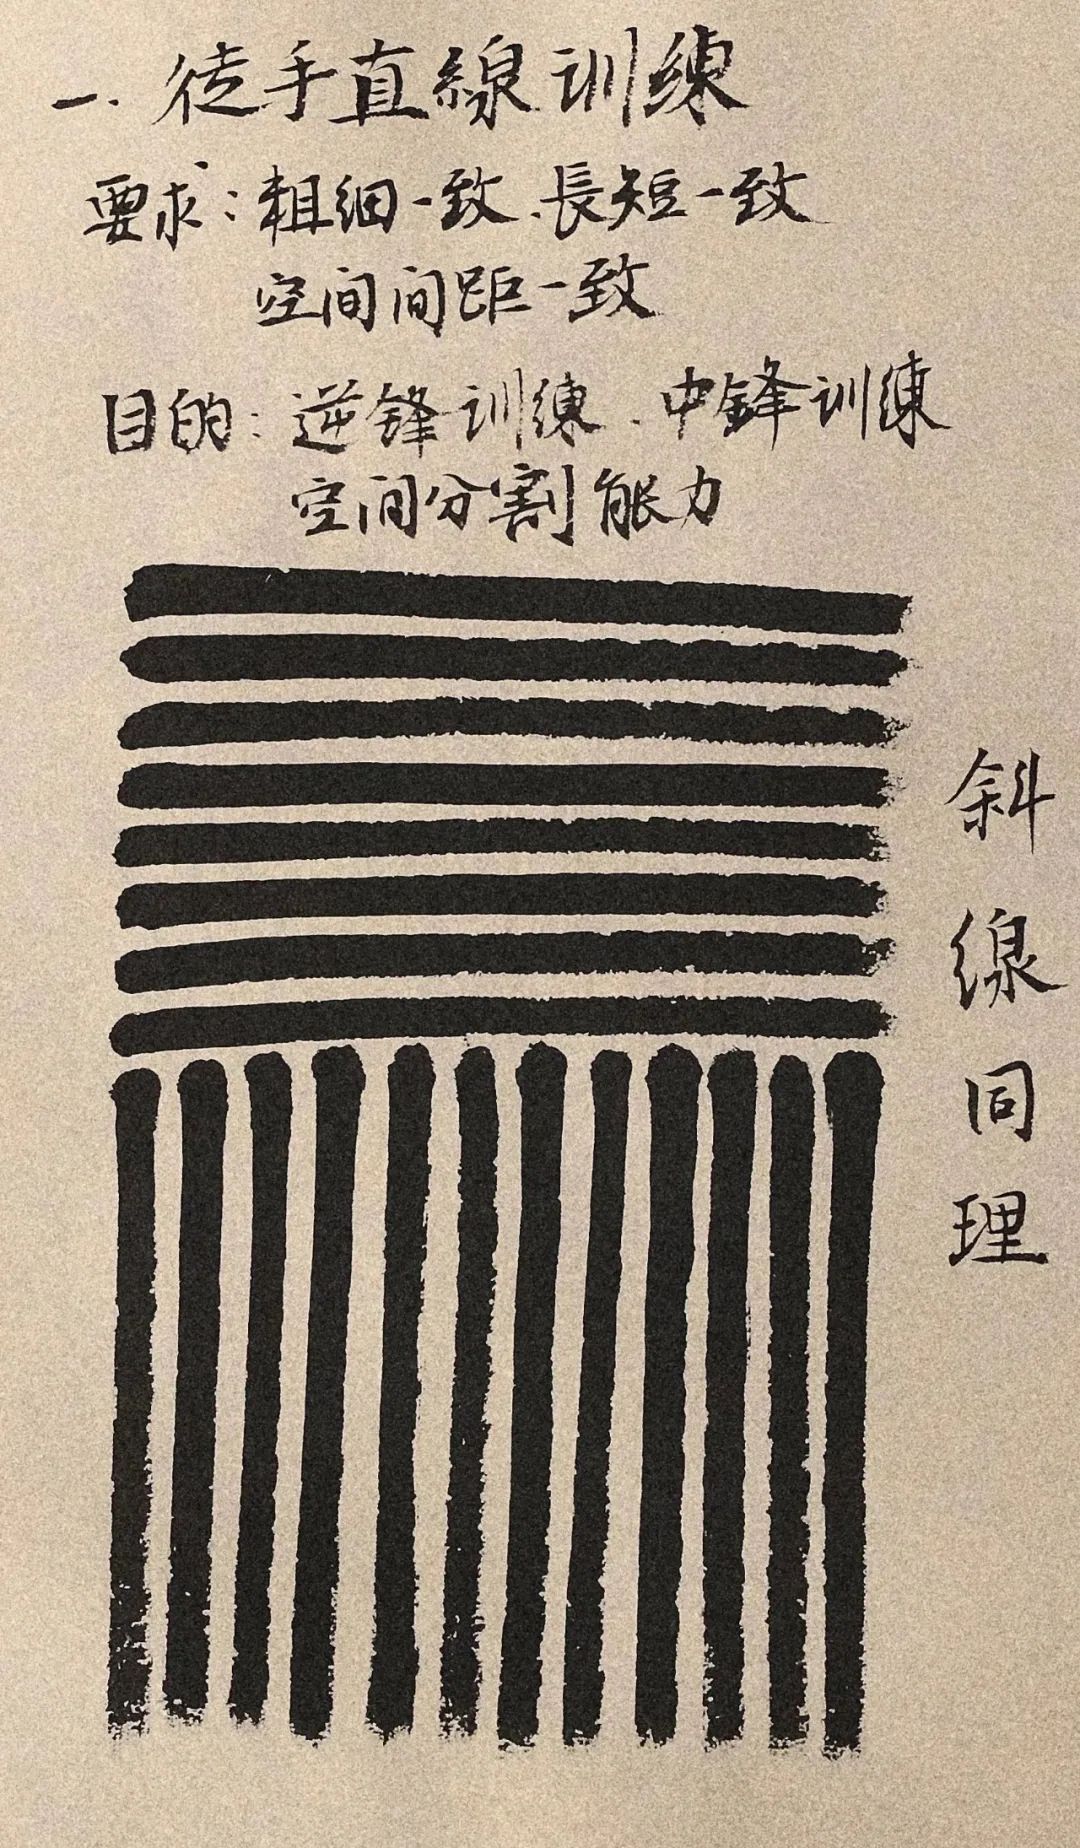 一.徒手直線训练
要求:粗细一致、長短一致
空间间距一致
目的:逆锋训练、中锋训练
空间分割能力
斜線同理